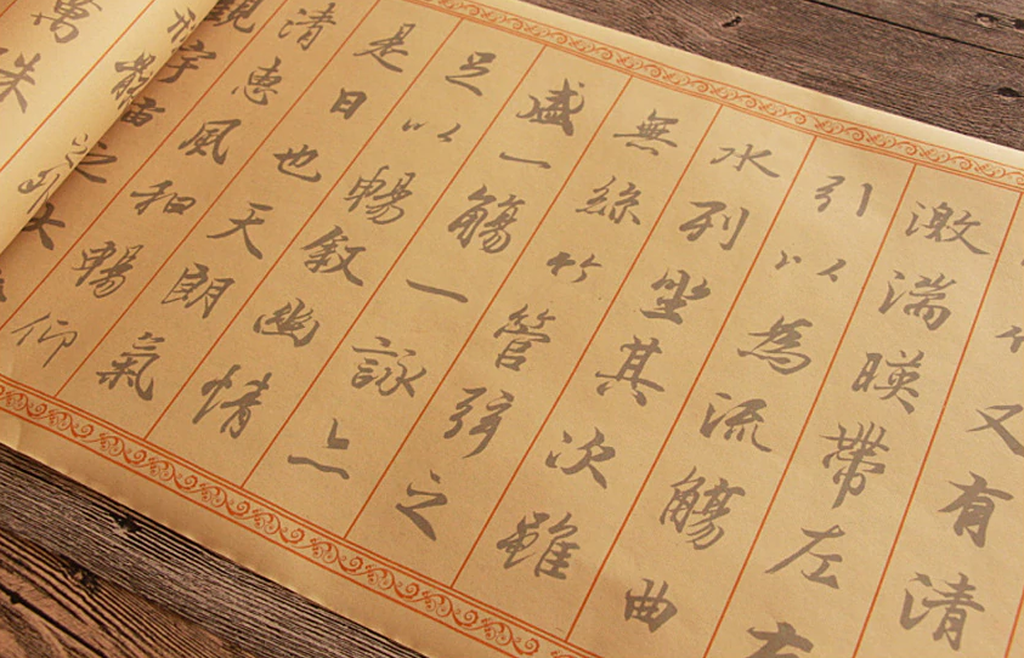 又有清
激湍暎帶左右
引以為流觴曲
水列坐其次雖
無絲竹管弦之
盛一觴一詠亦
足以暢敘幽情
是日也天朗氣
清惠風和暢仰
觀宇宙之大
形骸之外
萬殊